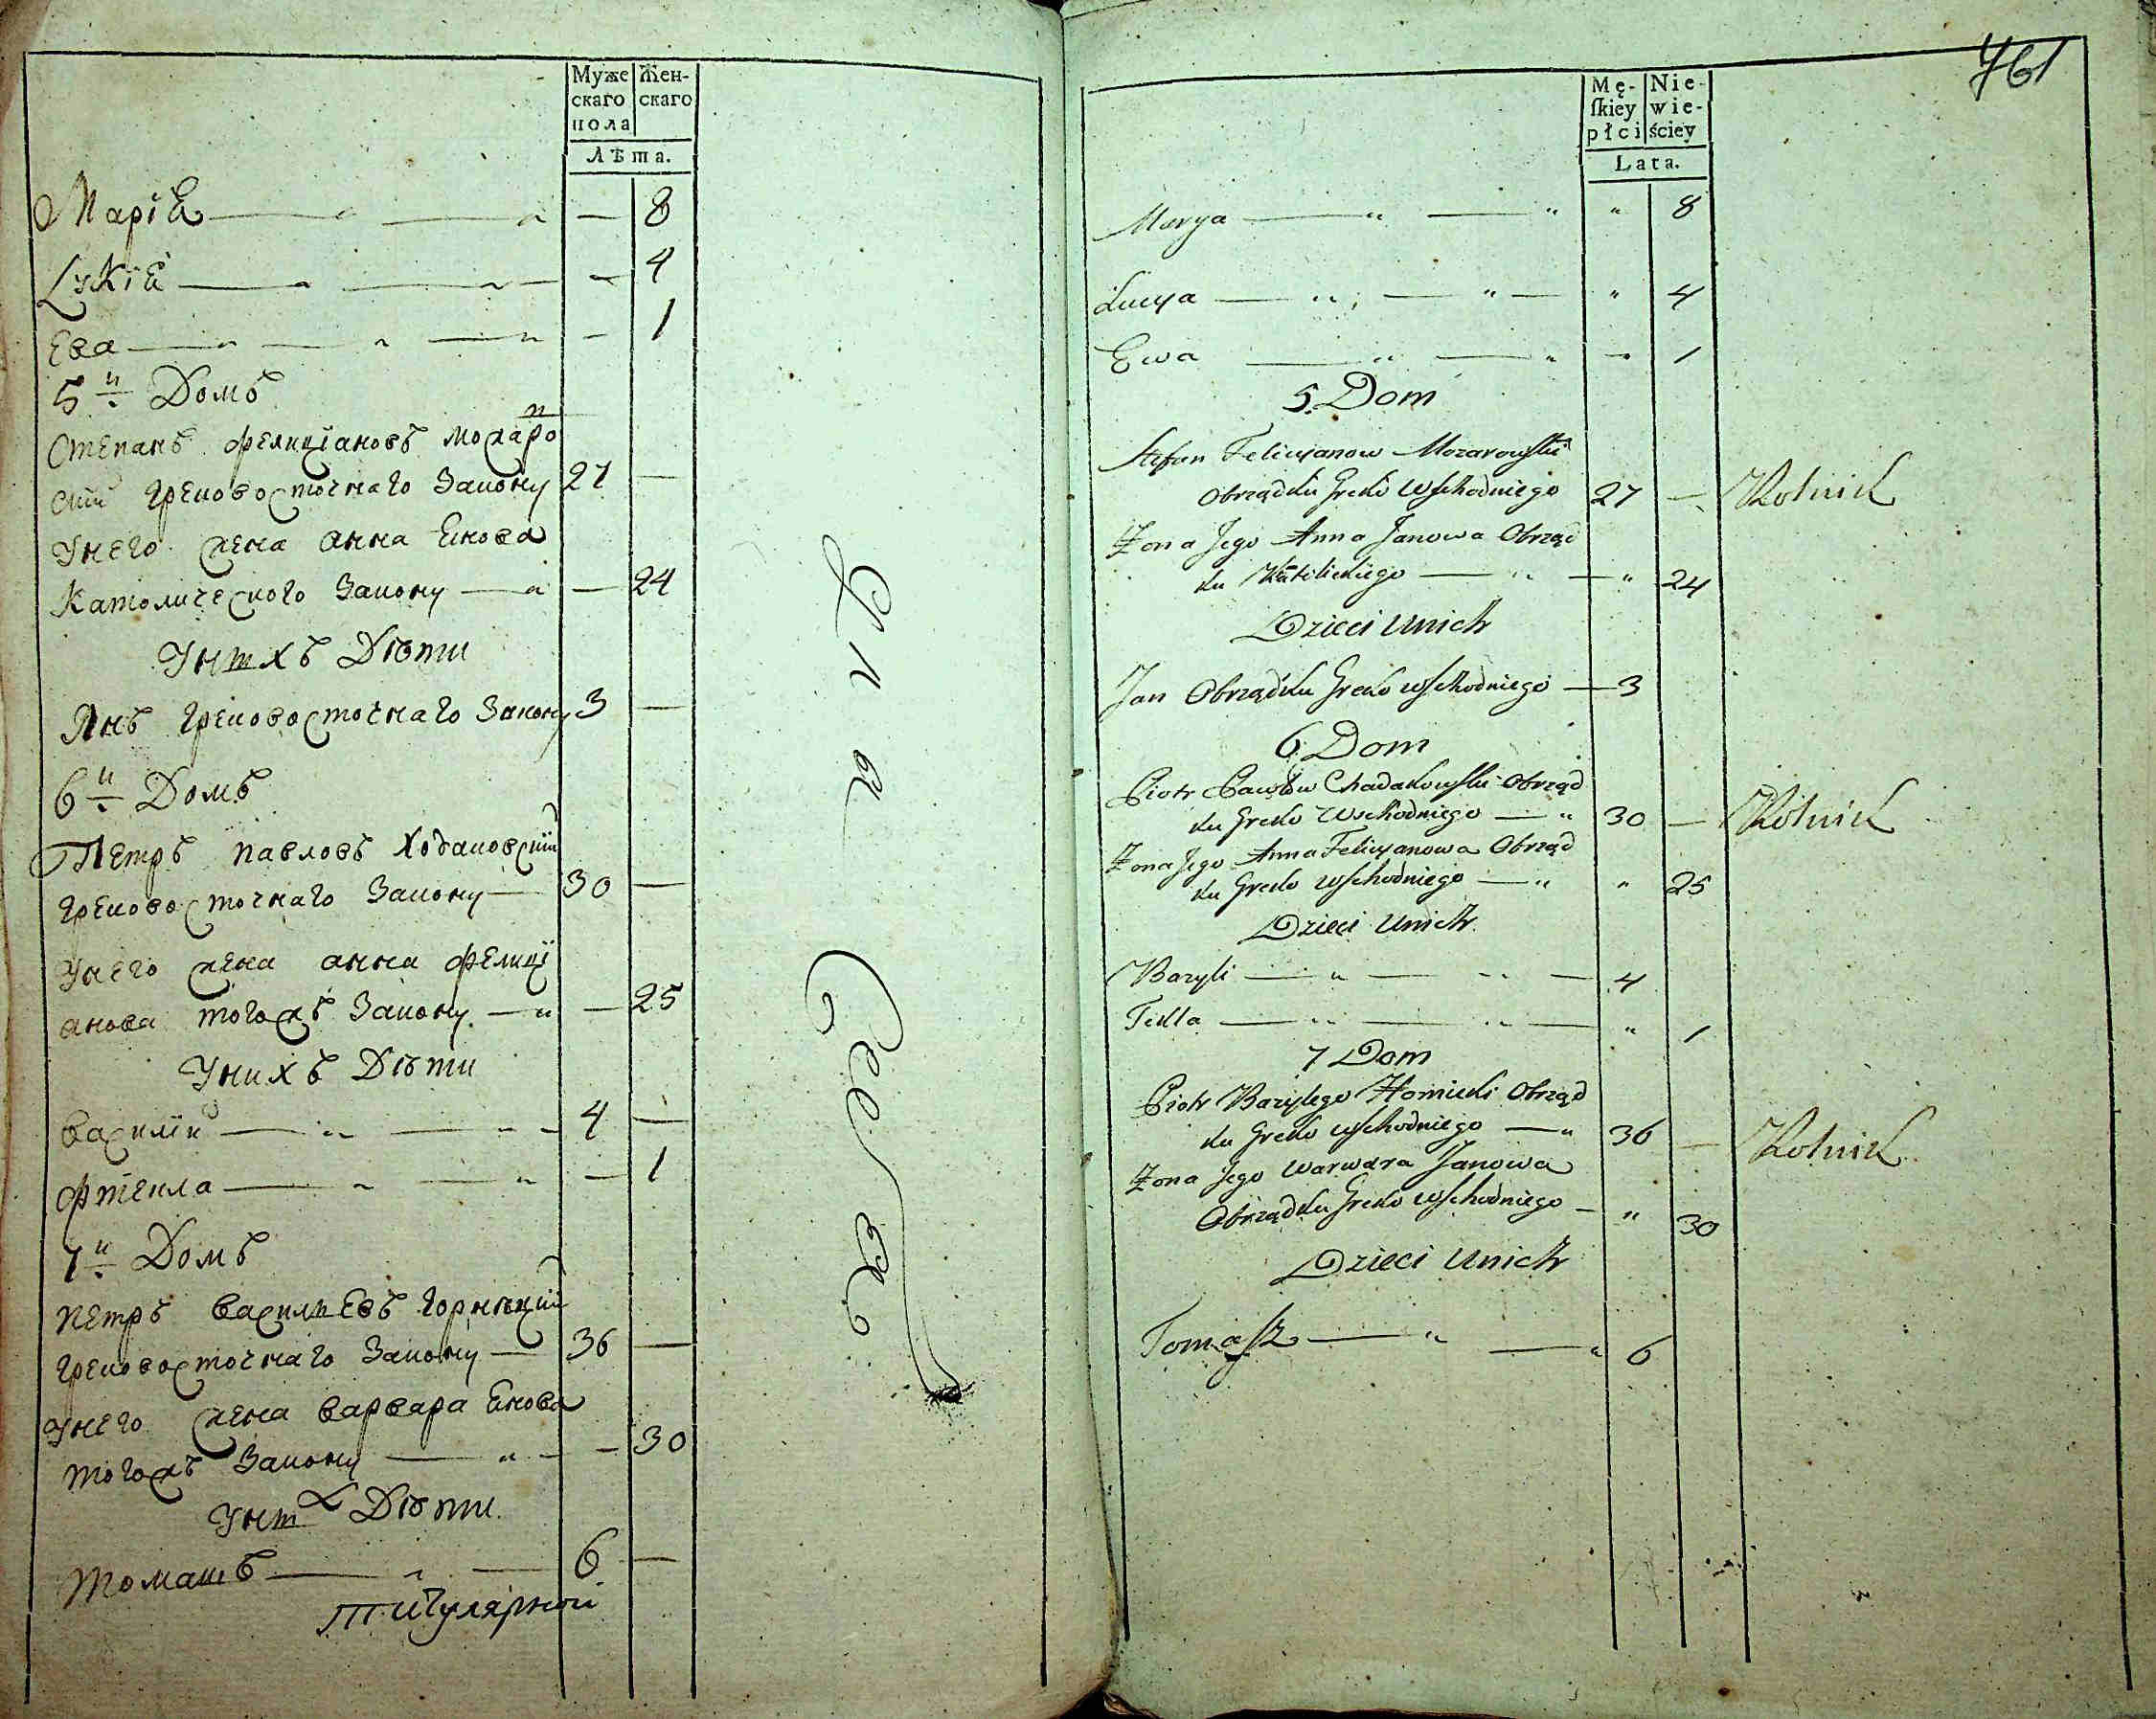 Муже
скаго
пола
Жен-
скаго
Лѣта.
Маріѣ — 8
Лукіѣ — 4
Ева — 1
5й Домъ
Степанъ Фелиціановъ
Грековосточнаго Закону 27 —
Унего жена Анна Янова
Католического Закону — 24
Унихъ Дѣти
Янъ Грековосточнаго Закону 3 —
6й Домъ
Петръ Павловъ Ходаковскій
Грековосточнаго Закону — 30 —
Унего жена Анна Фелиці
анова тогожъ Закону — 25
Унихъ Дѣти
Василій — 4 —
Фтекла — 1
7й Домъ
Петръ Васильевъ Горницкий
Грековосточнаго Закону — 36 —
Унего жена Варвара Янова
тогожъ Закону — 30
Унихъ Дѣти
Томашъ — 6 —
Титулярной
761
Mę-
ſkiey
płci
Nie-
wie-
ściey
Lata.
Marya — " — " " 8
Łucya — " — " — " 4
Ewa — " — " — 1
5. Dom
Stefan Felicyanow Mozarowſki
Obrządku Greko Wſchodniego 27 — Rolnik
Żona Jego Anna Janowa Obrząd
ku Katolickiego — " — " 24
Dzieci Unich
Jan Obrządku Greko wſchodniego — 3
6 Dom
Piotr Pawłow Chadakowſki Obrząd
ku Greko Wschodniego — " 30 — Rolnik
Żona Jego Anna Felicyanowa Obrząd
ku Greko wſchodniego — " " 25
Dzieci Unich
Bazyli — " — " — 4
Tekla — " — " — " 1
7 Dom
Piotr Bazylego Hornicki Obrząd
ku Greko wſchodniego — " 36 — Rolnik
Żona Jego Warwara Janowa
Obrządku Greko wſchodniego — " 30
Dzieci Unich
Tomaſz — " — " 6